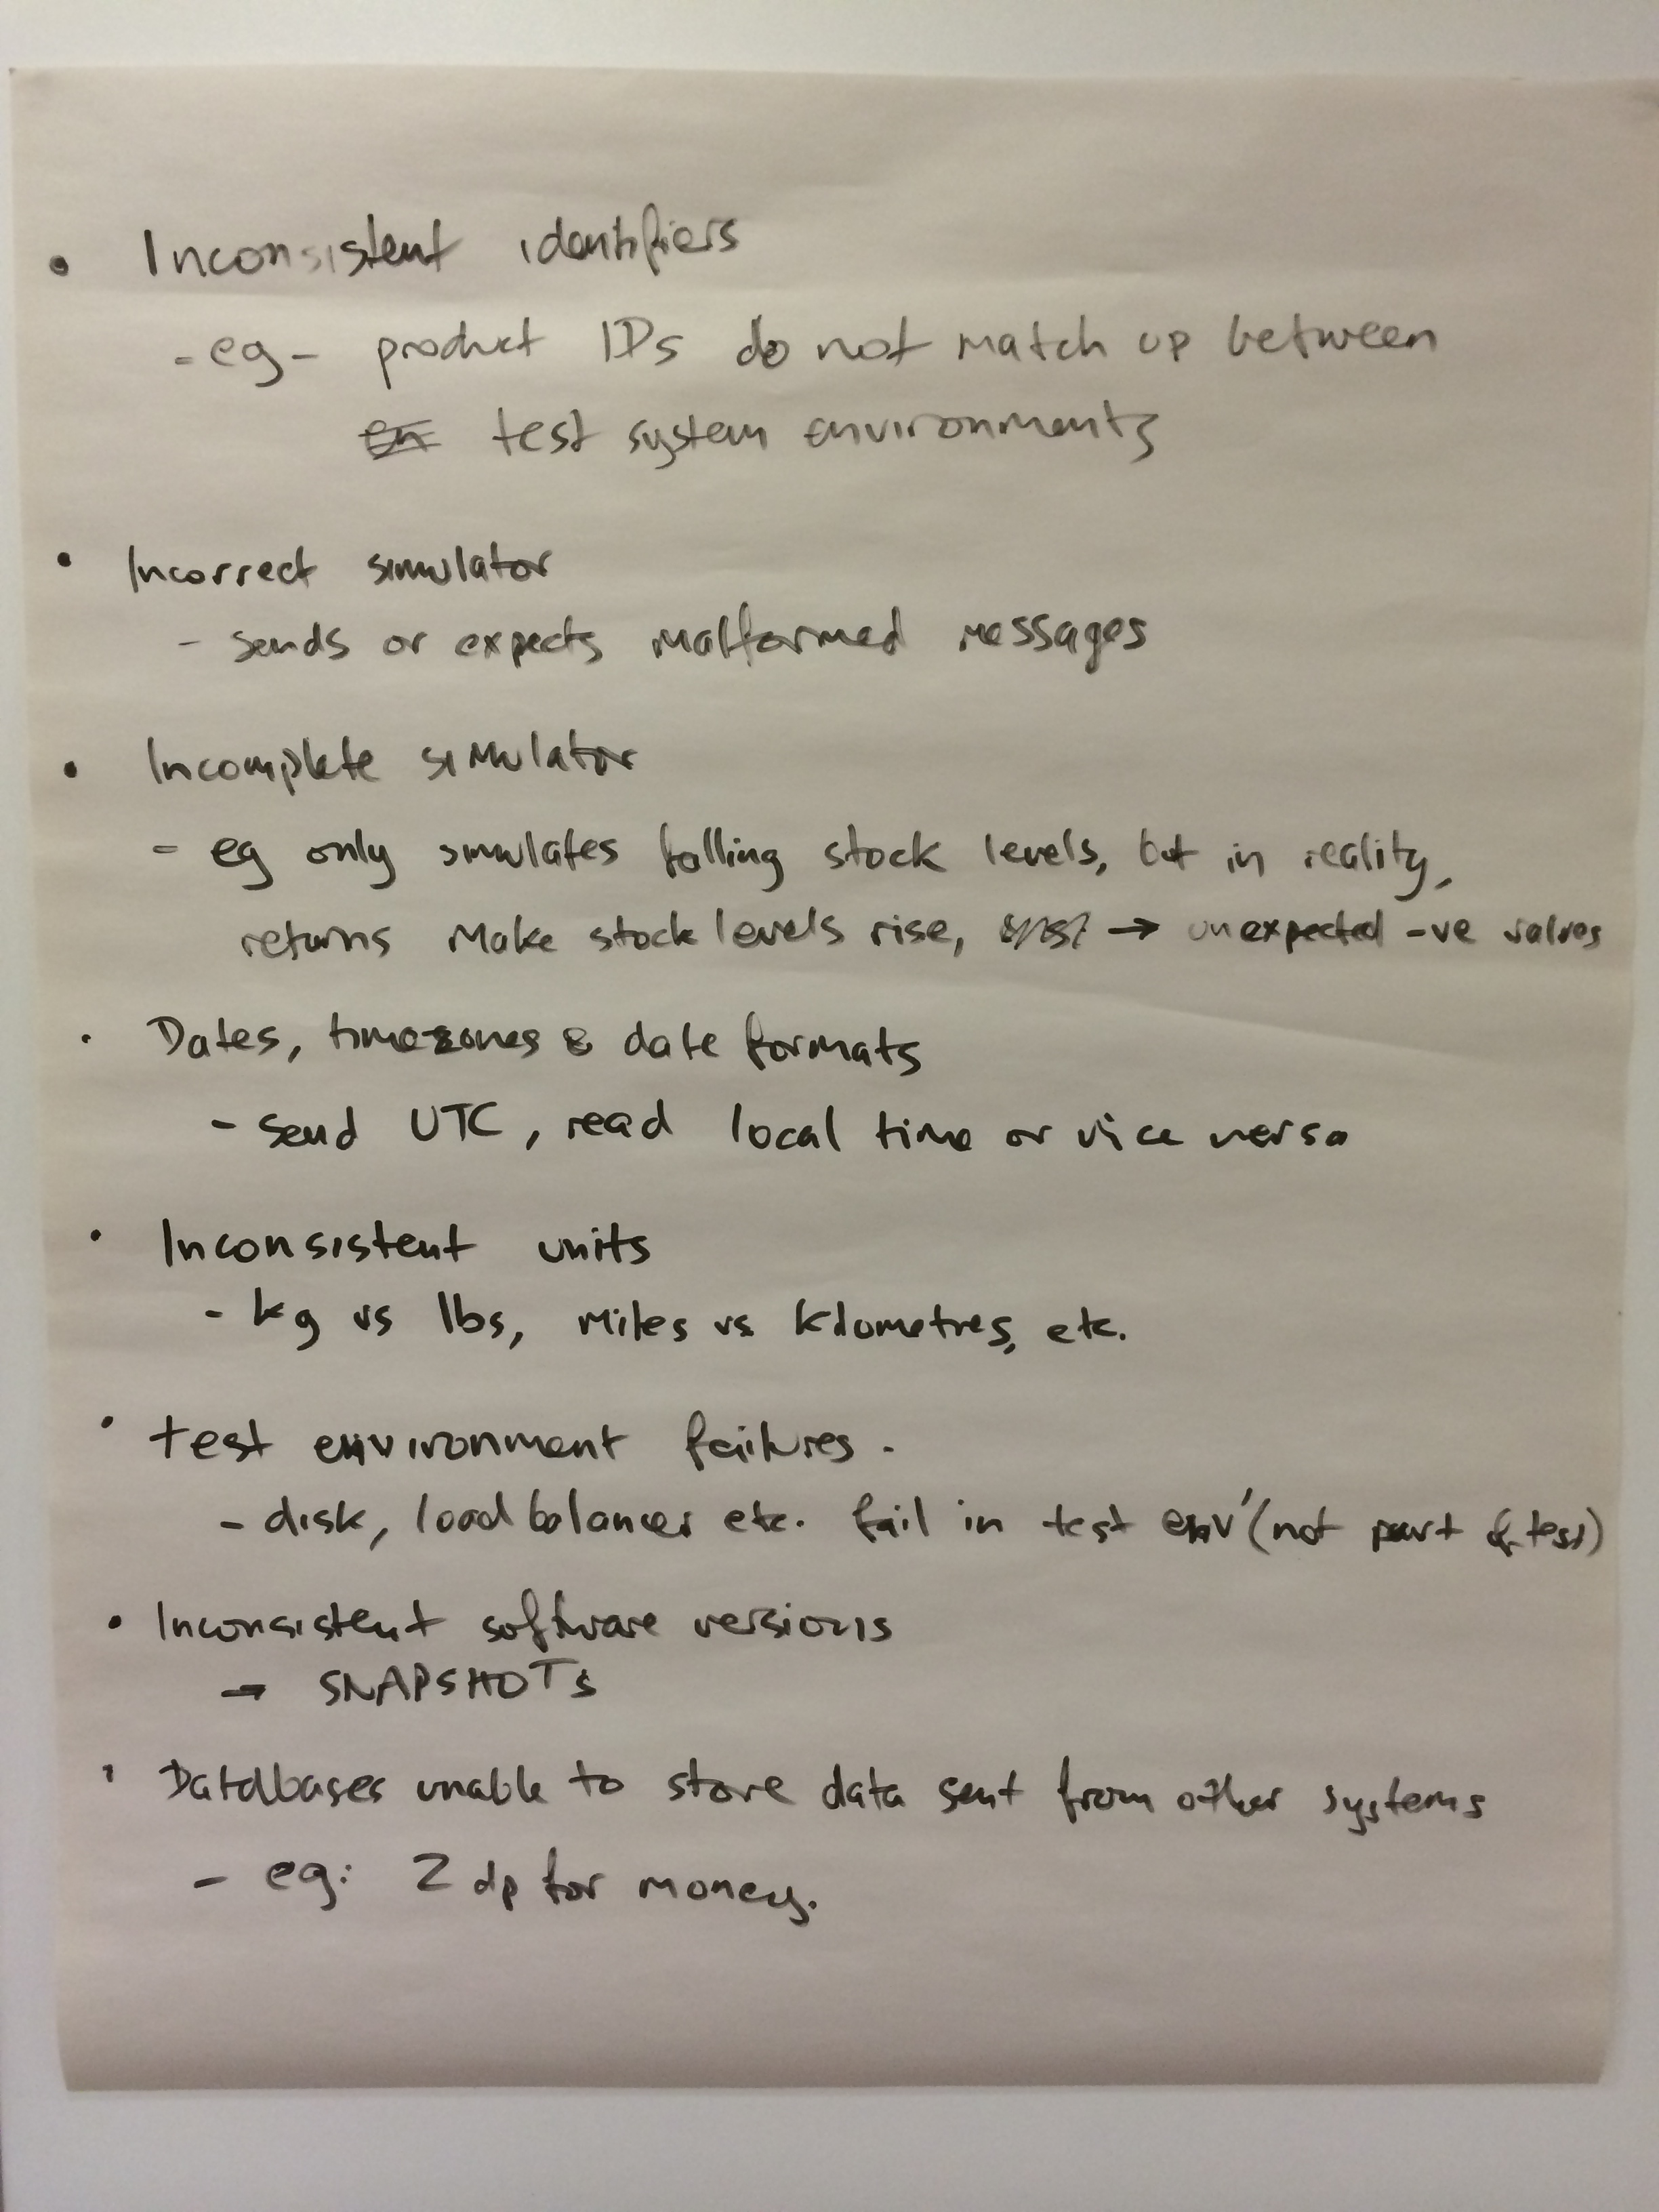 • Inconsistent identifiers
- eg - product IDs do not match up between
en test system environments
• Incorrect simulator
- sends or expects malformed messages
• Incomplete simulator
- eg only simulates falling stock levels, but in reality,
returns make stock levels rise, → unexpected -ve values
• Dates, timezones & date formats
- send UTC, read local time or vice versa
• Inconsistent units
- kg vs lbs, miles vs kilometres, etc.
• test environment failures.
- disk, load balancer etc. fail in test env' (not part of test)
• Inconsistent software versions
→ SNAPSHOTs
• Databases unable to store data sent from other systems
- eg: 2 dp for money.